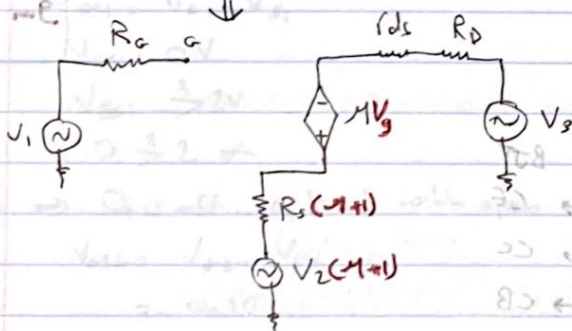 R_G G
rds R_D
V₁
μVg
V₃
R_s(μ+1)
V₂(μ+1)